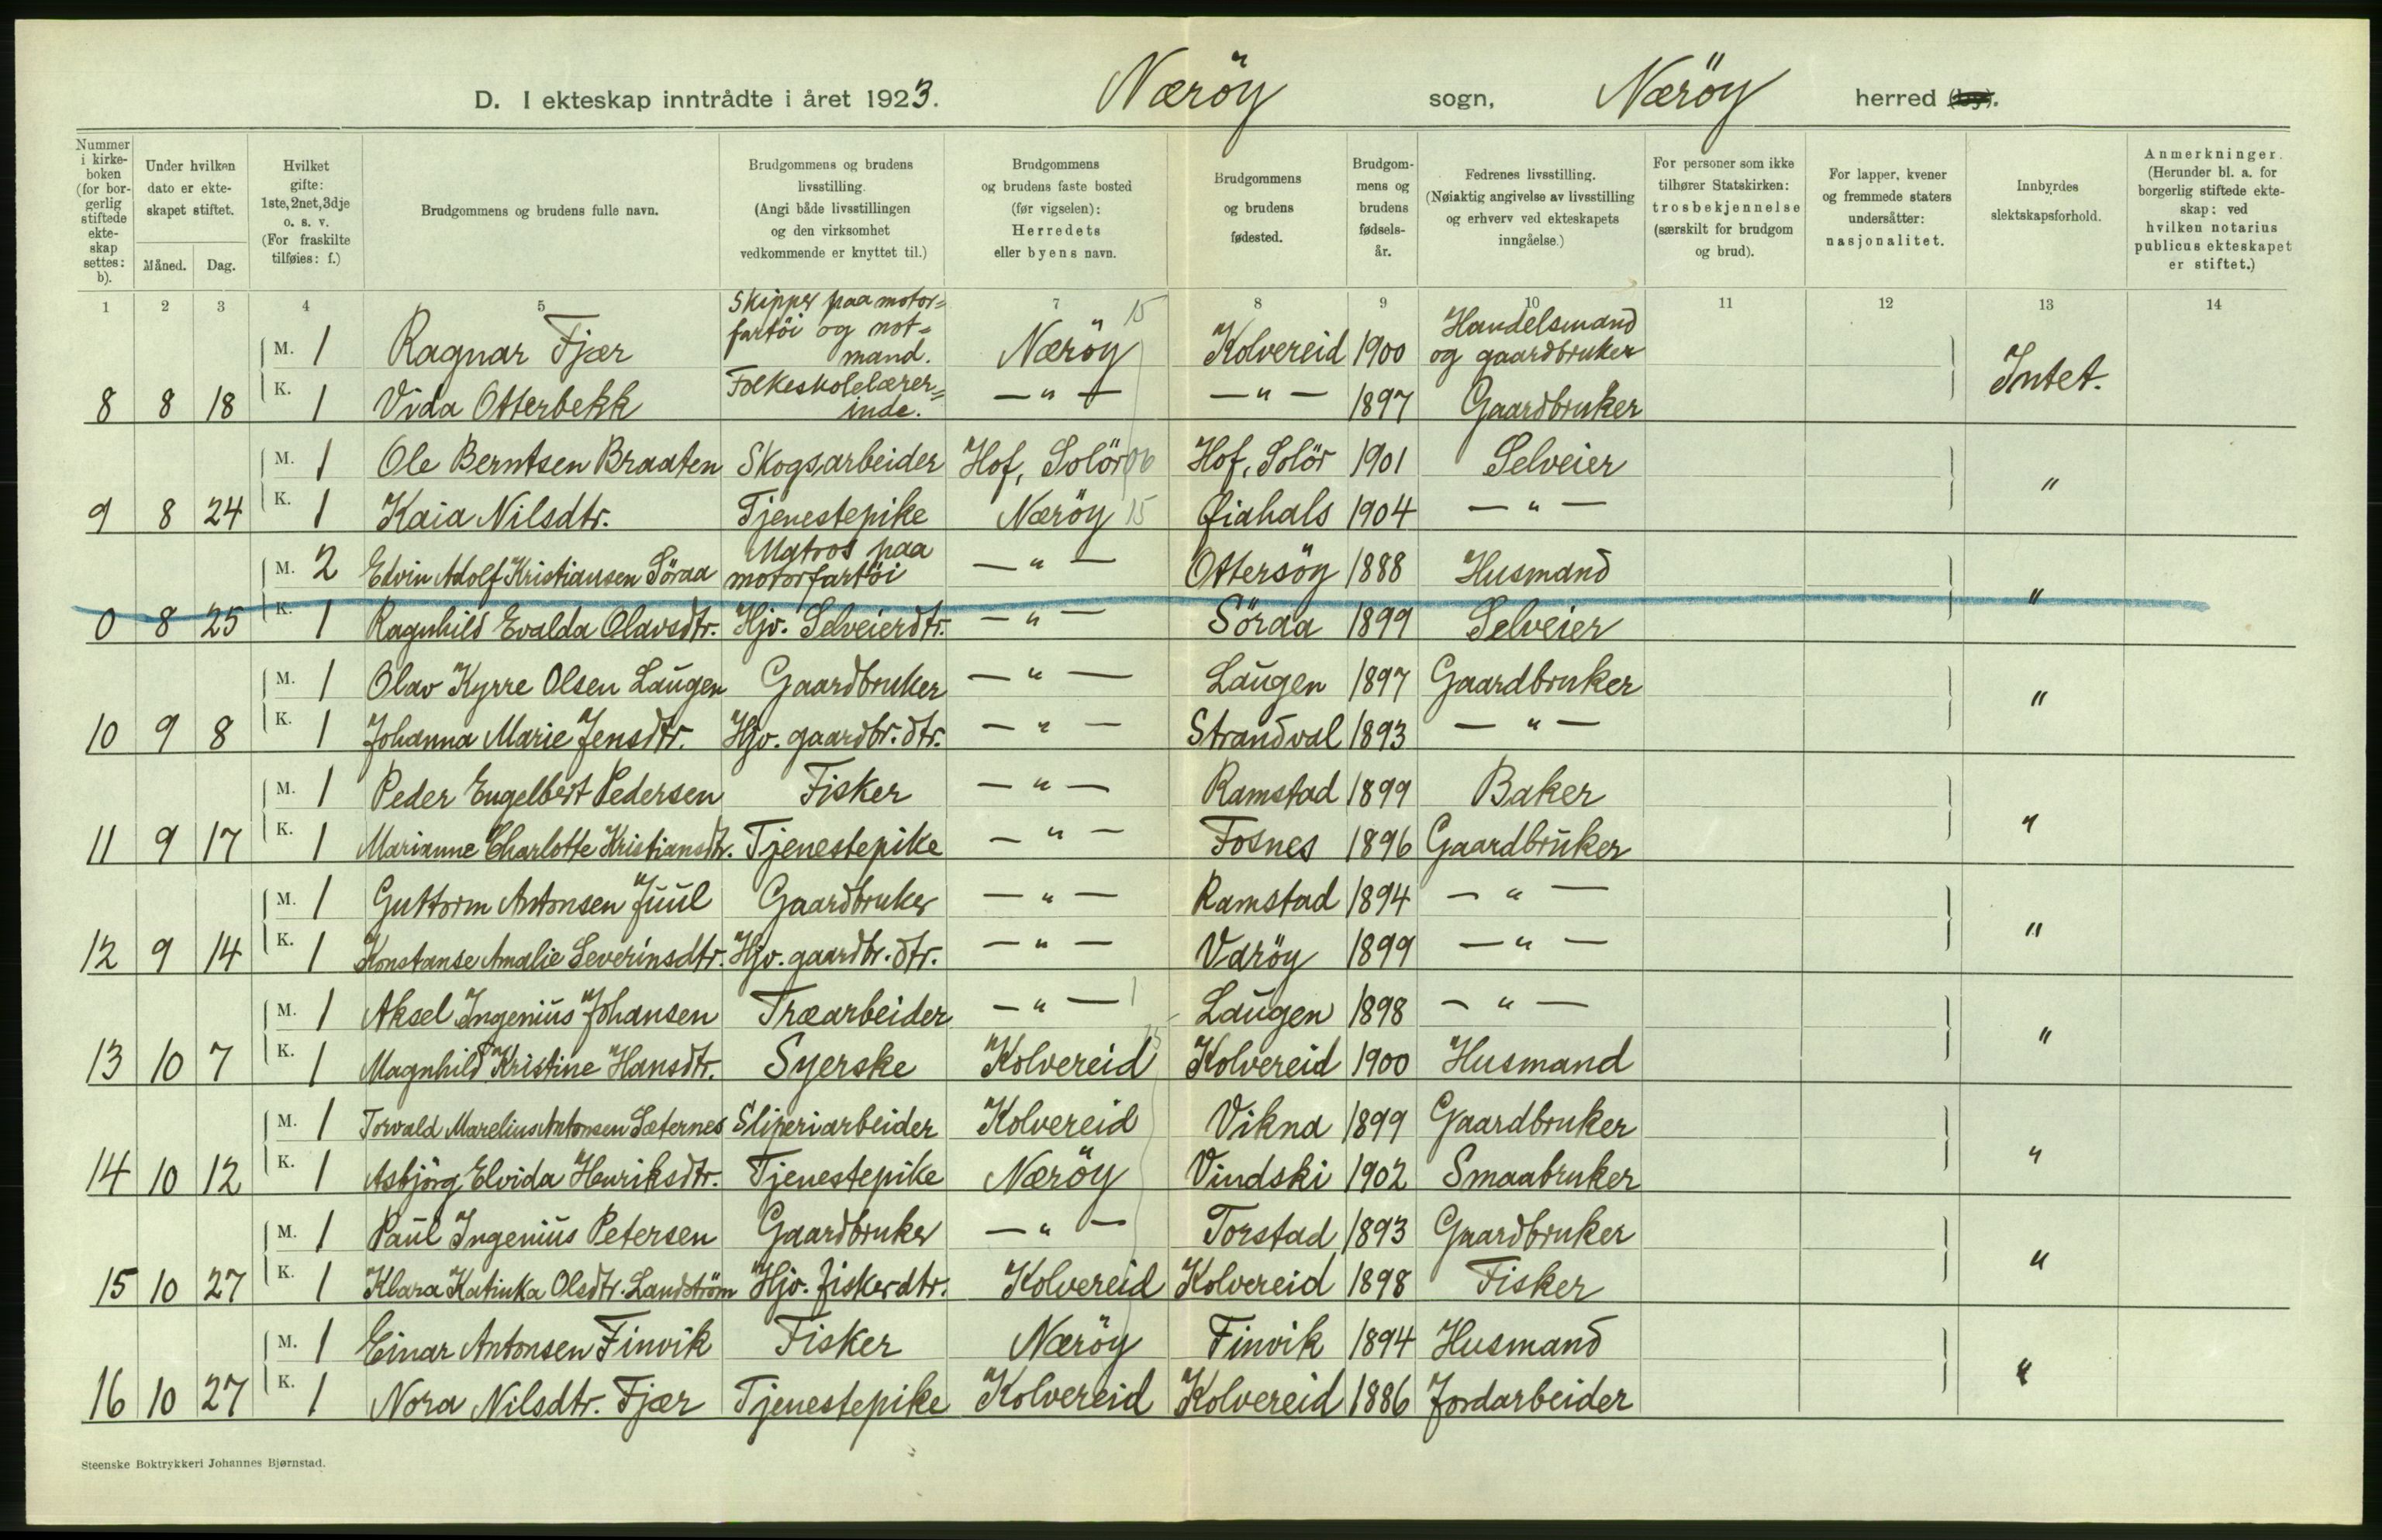 D. I ekteskap inntrådte i året 1923. Næröy sogn, Næröy herred (by).
Nummer i kirkeboken (for borgerlig stiftede ekteskap settes: b).
Under hvilken dato er ekteskapet stiftet.
Måned. Dag.
Hvilket gifte: 1ste, 2net, 3dje o. s. v. (For fraskilte tilføies: f.)
Brudgommens og brudens fulle navn.
Brudgommens og brudens livsstilling. (Angi både livsstillingen og den virksomhet vedkommende er knyttet til.)
Brudgommens og brudens faste bosted (før vigselen): Herredets eller byens navn.
Brudgommens og brudens fødested.
Brudgommens og brudens fødselsår.
Fedrenes livsstilling. (Nøiaktig angivelse av livsstilling og erhverv ved ekteskapets inngåelse.)
For personer som ikke tilhører Statskirken: trosbekjennelse (særskilt for brudgom og brud).
For lapper, kvener og fremmede staters undersåtter: nasjonalitet.
Innbyrdes slektskapsforhold.
Anmerkninger. (Herunder bl. a. for borgerlig stiftede ekteskap: ved hvilken notarius publicus ekteskapet er stiftet.)
1 2 3 4 5 6 7 8 9 10 11 12 13 14
M. 1 Ragnar Fjær Skipper paa motor=fartöi og not=mand. Næröy 15 Kolvereid 1900 Handelsmand og gaardbruker
8 8 18 K. 1 Vida Otterbekk Folkeskolelærer=inde. — " — — " — 1897 Gaardbruker Intet.
M. 1 Ole Berntsen Braaten Skogsarbeider Hof, Solör 06 Hof, Solör 1901 Selveier
9 8 24 K. 1 Kaia Nilsdtr. Tjenestepike Næröy 15 Øiahals 1904 — " — "
M. 2 Edvin Adolf Kristiansen Söraa Matros paa motorfartöi — " — Ottersöy 1888 Husmand
0 8 25 K. 1 Ragnhild Evalda Olavsdtr. Hjv. Selveierdtr. — " — Söraa 1899 Selveier "
M. 1 Olav Kyrre Olsen Laugen Gaardbruker — " — Laugen 1897 Gaardbruker
10 9 8 K. 1 Johanna Marie Jensdtr. Hjv. gaardbr. dtr. — " — Strandval 1893 — " — "
M. 1 Peder Engelbert Pedersen Fisker — " — Ramstad 1899 Baker
11 9 17 K. 1 Marianne Charlotte Kristiansdtr. Tjenestepike — " — Fosnes 1896 Gaardbruker "
M. 1 Guttorm Antonsen Juul Gaardbruker — " — Ramstad 1894 — " —
12 9 14 K. 1 Konstanse Amalie Severinsdtr. Hjv. gaardbr. dtr. — " — Varöy 1899 — " — "
M. 1 Aksel Ingenius Johansen Træarbeider — " — Laugen 1898 — " —
13 10 7 K. 1 Magnhild Kristine Hansdtr. Syerske Kolvereid Kolvereid 1900 Husmand "
M. 1 Torvald Marelius Antonsen Sæternes Sliperiarbeider Kolvereid Vikna 1899 Gaardbruker
14 10 12 K. 1 Asbjörg Elvida Henriksdtr. Tjenestepike Næröy Vindski 1902 Smaabruker "
M. 1 Paul Ingenius Petersen Gaardbruker — " — Torstad 1893 Gaardbruker
15 10 27 K. 1 Klara Katinka Olsdtr. Landström Hjv. fiskerdtr. Kolvereid Kolvereid 1898 Fisker "
M. 1 Einar Antonsen Finvik Fisker Næröy Finvik 1894 Husmand
16 10 27 K. 1 Nora Nilsdtr. Fjær Tjenestepike Kolvereid Kolvereid 1886 Jordarbeider "
Steenske Boktrykkeri Johannes Bjørnstad.